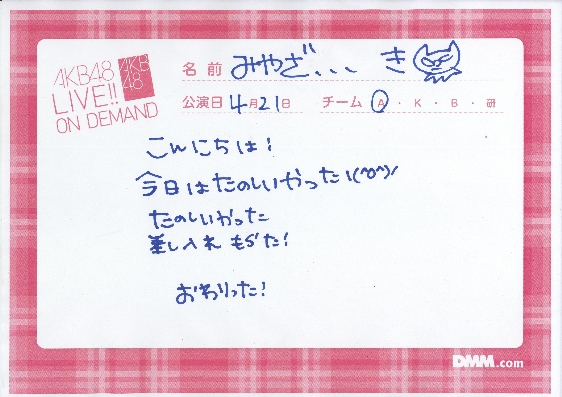 AKB48
LIVE!!
ON DEMAND
AKB
48
名前 みやざ、、、き
公演日 4月21日 チーム A・K・B・研
こんにちは!
今日はたのしいやった!(^o^)/
たのしいかった
差し入れ もらた!
おわりった!
DMM.com